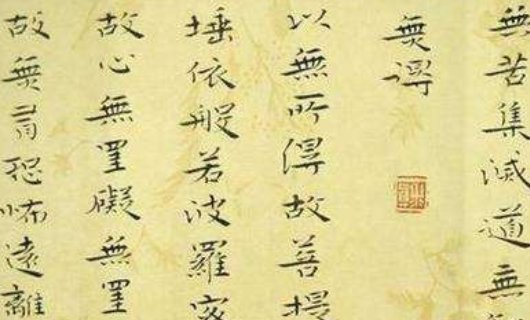 無苦集滅道無
無得
以無所得故菩提
埵依般若波羅密
故心無罣礙無罣
故無有恐怖遠離